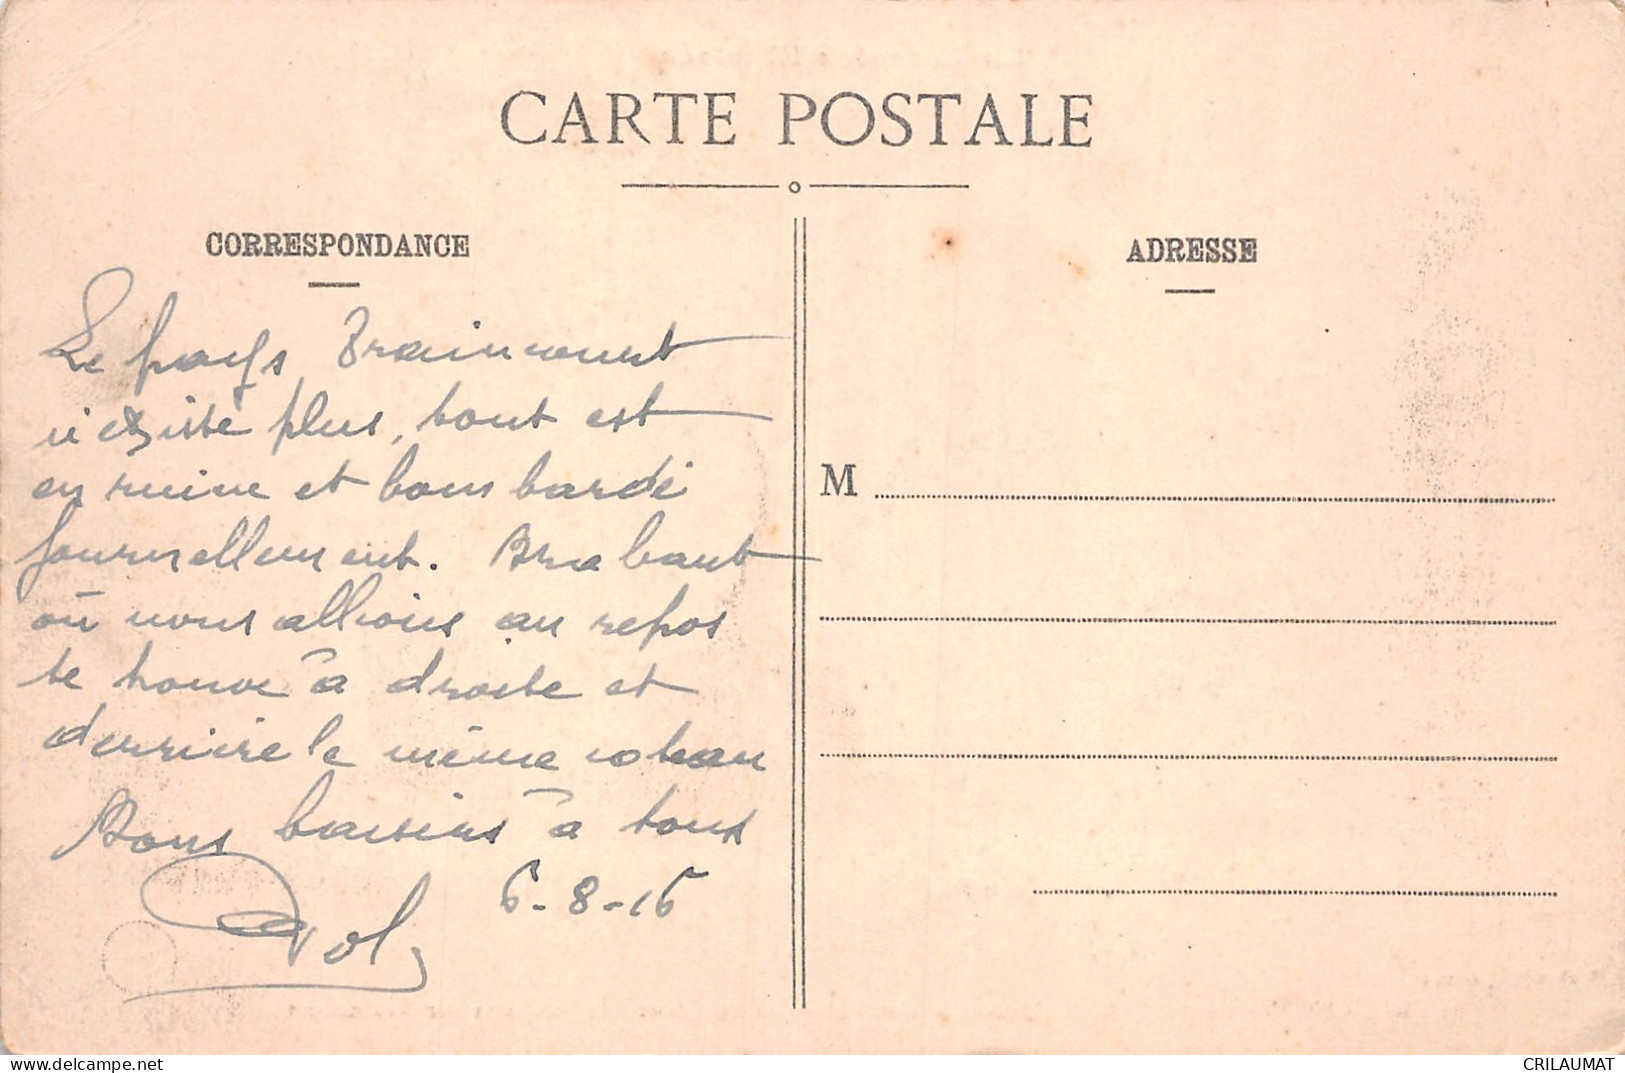 CARTE POSTALE
CORRESPONDANCE
ADRESSE
M
Le pays Fraincourt
n'existe plus, tout est
en ruine et bombardé
journellement. Brabant
où nous allions au repos
se trouve à droite et
derrière le même coteau
Bons baisers à tous
6-8-16
delcampe.net
CRILAUMAT